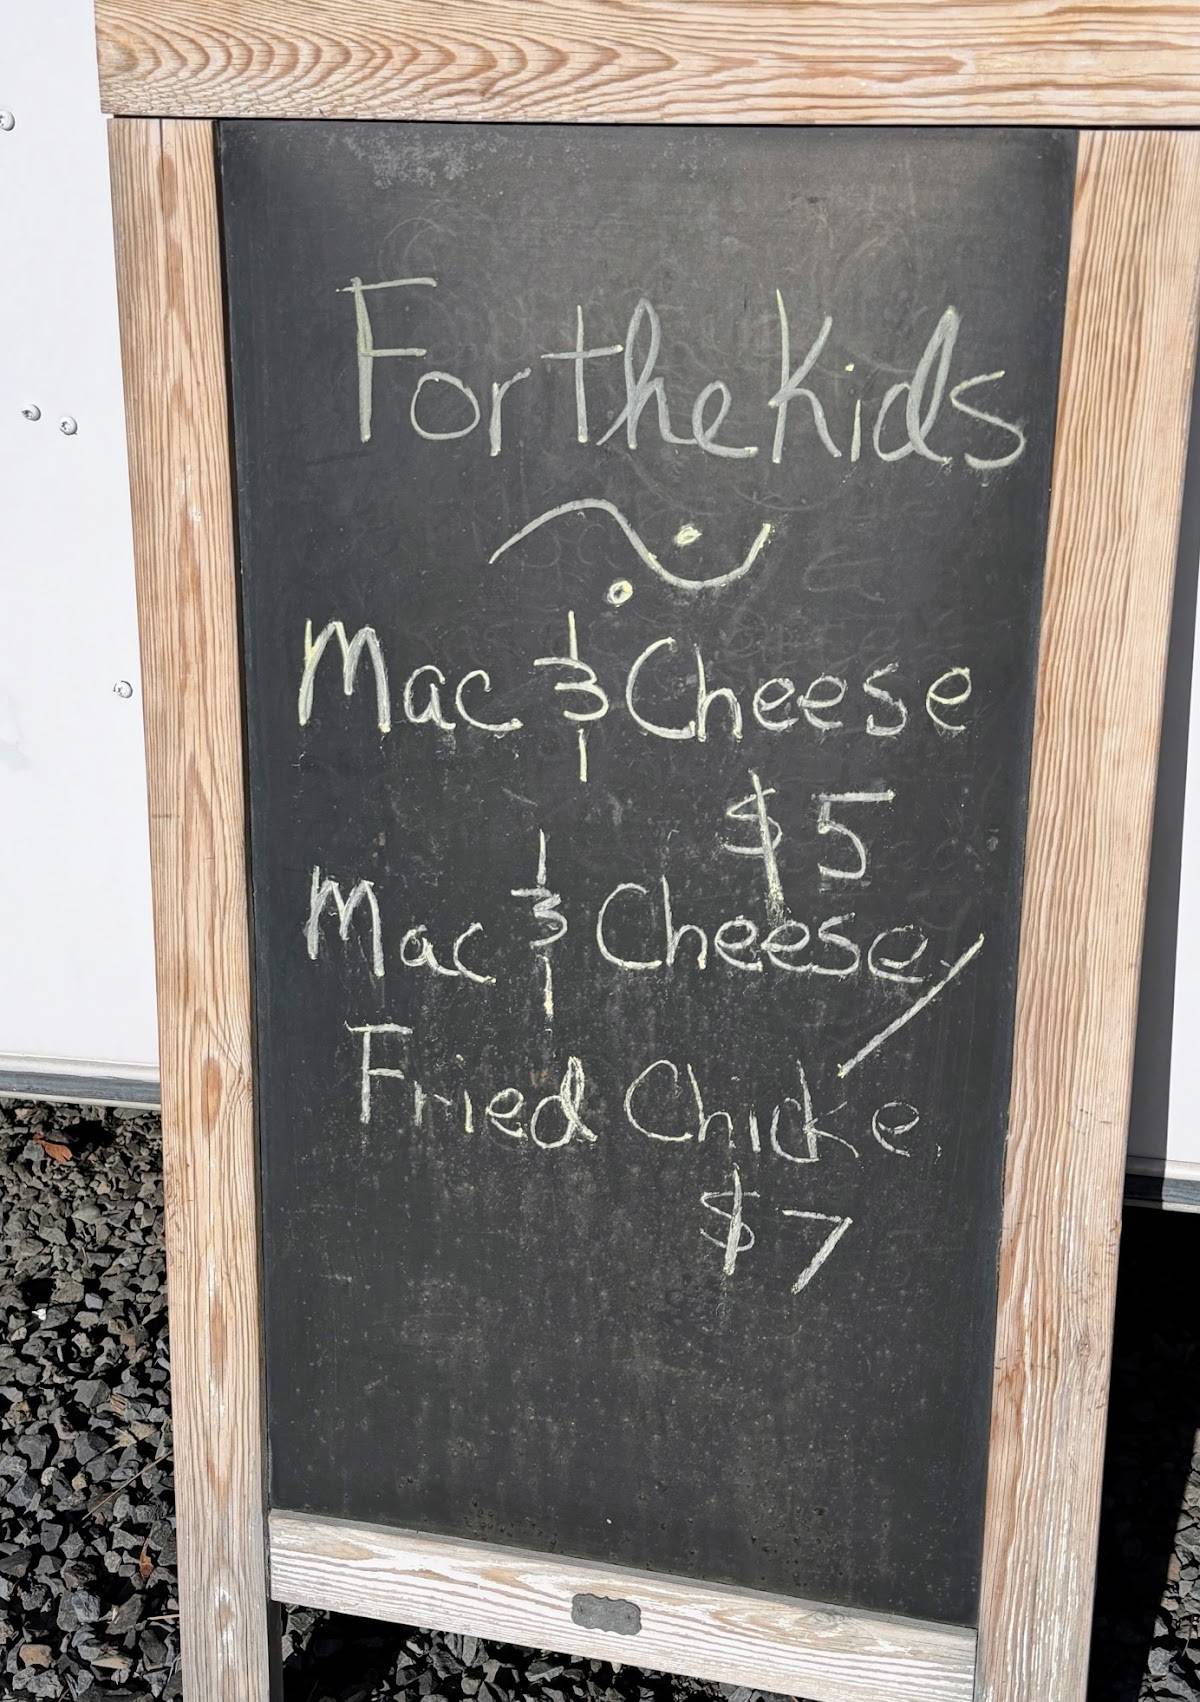 For the Kids
Mac & Cheese
$5
Mac & Cheese/
Fried Chicke
$7